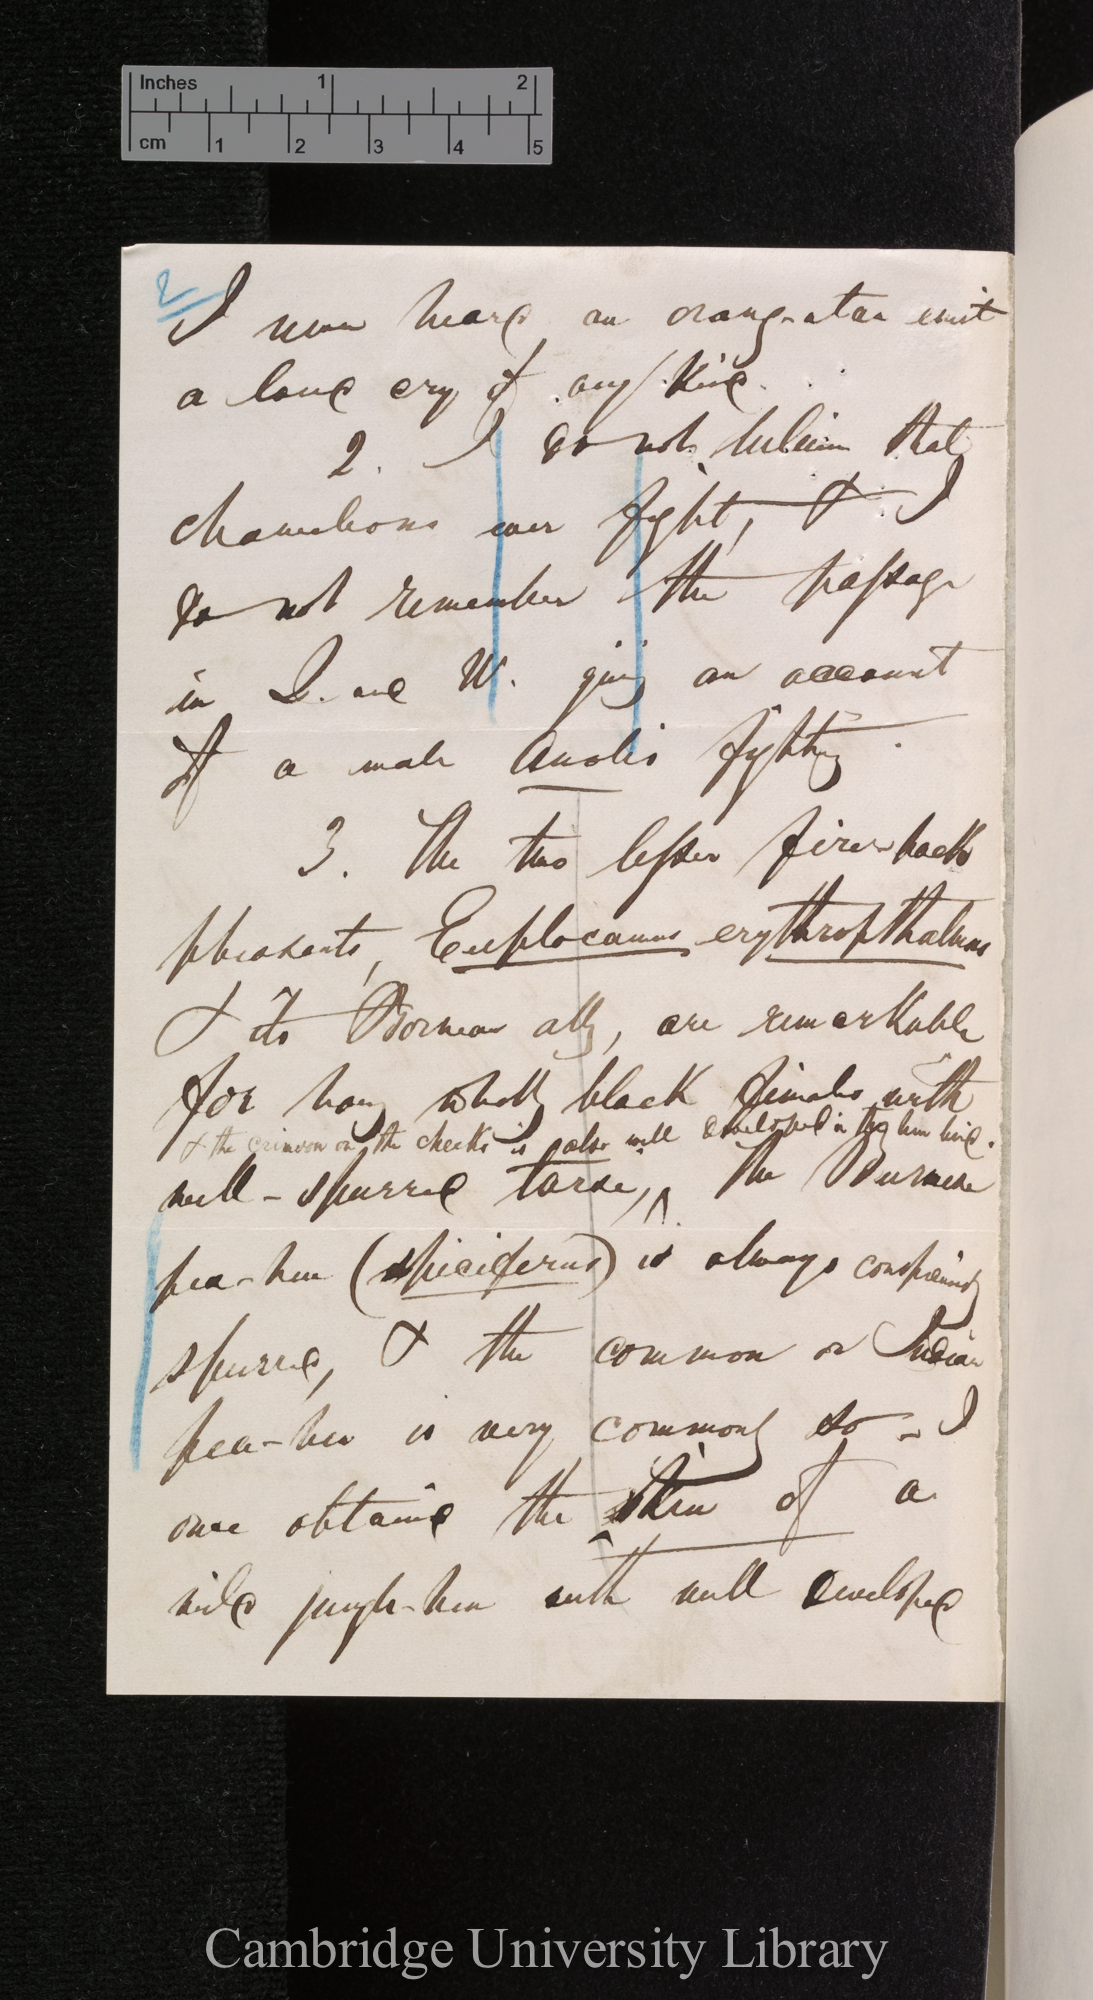 Inches 1 2
cm 1 2 3 4 5
2
I never heard an orang-utan emit
a loud cry of any kind.
2. I do not believe that
chameleons ever fight, & I
do not remember the passage
in L. and W. giving an account
of a male Anolis fighting.
3. The two lesser fire-back
pheasants, Euplocamus erythropthalmus
& its Bornean ally, are remarkable
for having wholly black females with
& the crimson on the cheeks is also well developed in the hen bird.
well-spurred tarse, ^ The Burmese
pea-hen (spiciferus) is always conspicuously
spurred, & the common or Indian
pea-hen is very commonly so - I
once obtained the skin of a
wild jungle-hen with well developed
Cambridge University Library